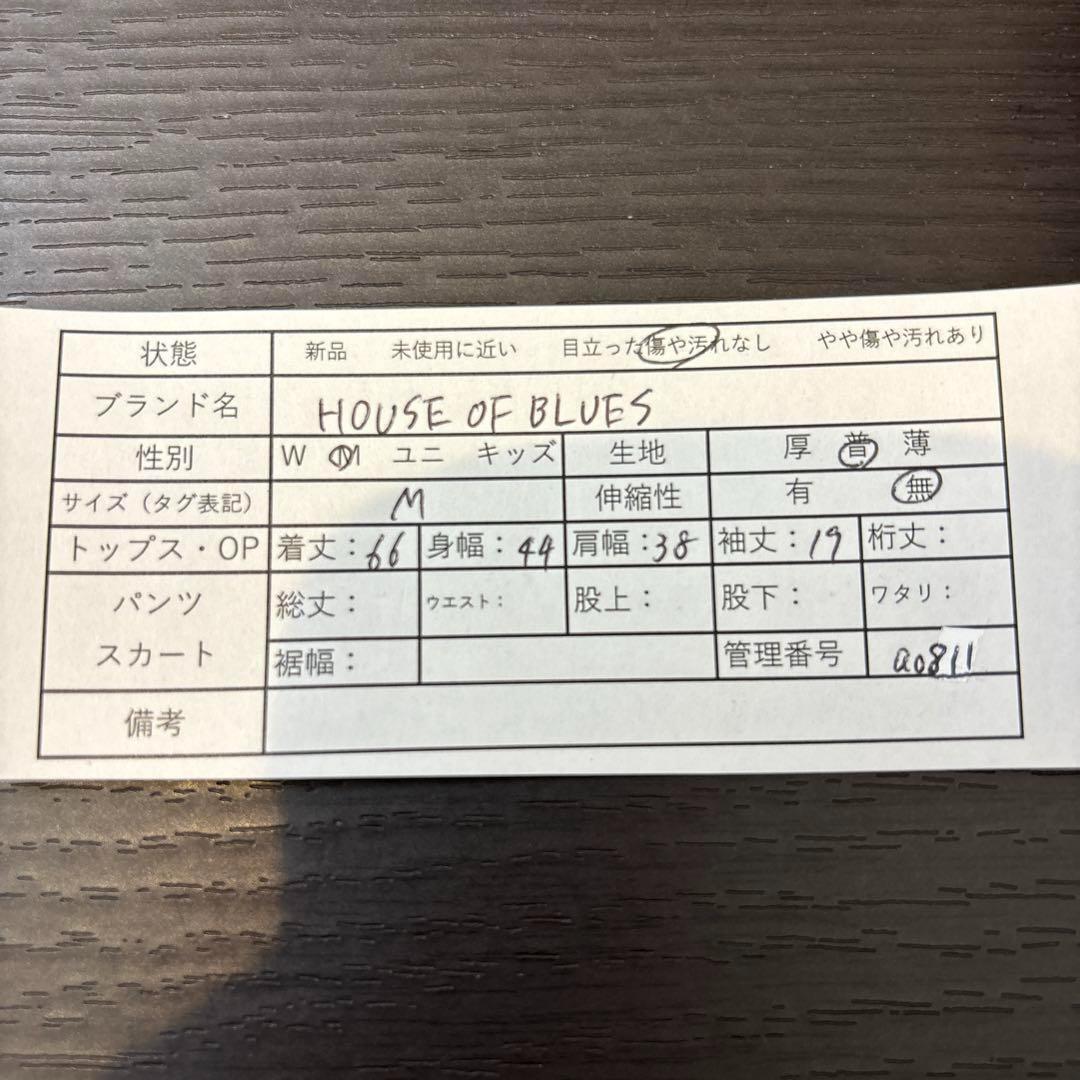 状態 新品 未使用に近い 目立った傷や汚れなし やや傷や汚れあり
ブランド名 HOUSE OF BLUES
性別 W M ユニ キッズ 生地 厚 普 薄
サイズ（タグ表記） M 伸縮性 有 無
トップス・OP 着丈：66 身幅：44 肩幅：38 袖丈：19 桁丈：
パンツ 総丈： ウエスト： 股上： 股下： ワタリ：
スカート 裾幅： 管理番号 a0811
備考